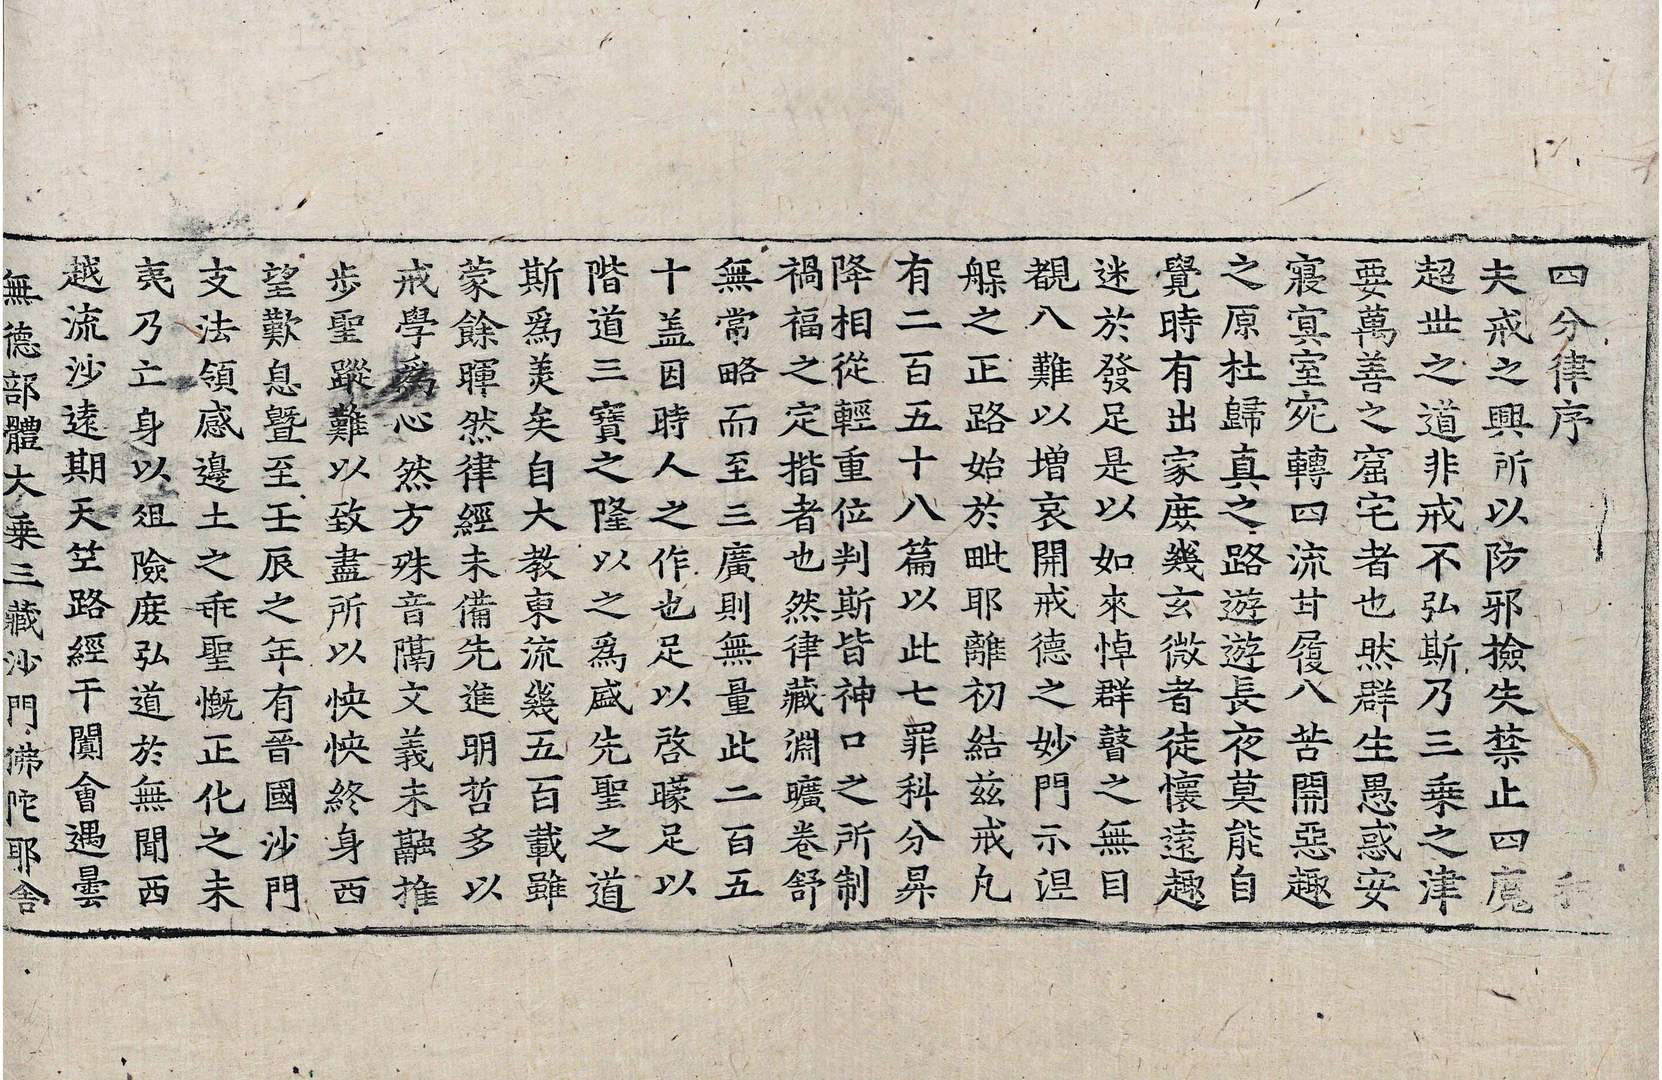 四分律序
夫戒之興所以防邪撿失禁止四魔
超世之道非戒不弘斯乃三乗之津
要萬善之窟宅者也然群生愚惑安
寢㝠室宛轉四流甘履八苦開惡趣
之原杜歸真之路遊遊長夜莫能自
覺時有出家庻幾玄微者徒懷遠趣
迷於發足是以如來悼群瞽之無目
覩八難以增哀開戒德之妙門示涅
槃之正路始於毗耶離初結兹戒凡
有二百五十八篇以此七罪科分昇
降相從輕重位判斯皆神口之所制
禍福之定揩者也然律藏淵曠卷舒
無常略而至三廣則無量此二百五
十盖因時人之作也足以啓矇足以
階道三寶之隆以之爲盛先聖之道
斯爲美矣自大教東流幾五百載雖
蒙餘暉然律經未備先進明哲多以
戒學爲心然方殊音隔文義未融推
步聖蹤難以致盡所以怏怏終身西
望歎息曁至壬辰之年有晉國沙門
支法領感邊土之乖聖慨正化之未
夷乃亡身以俎險庻弘道於無聞西
越流沙遠期天竺路經于闐會遇曇
無德部體大乗三藏沙門佛陀耶舎